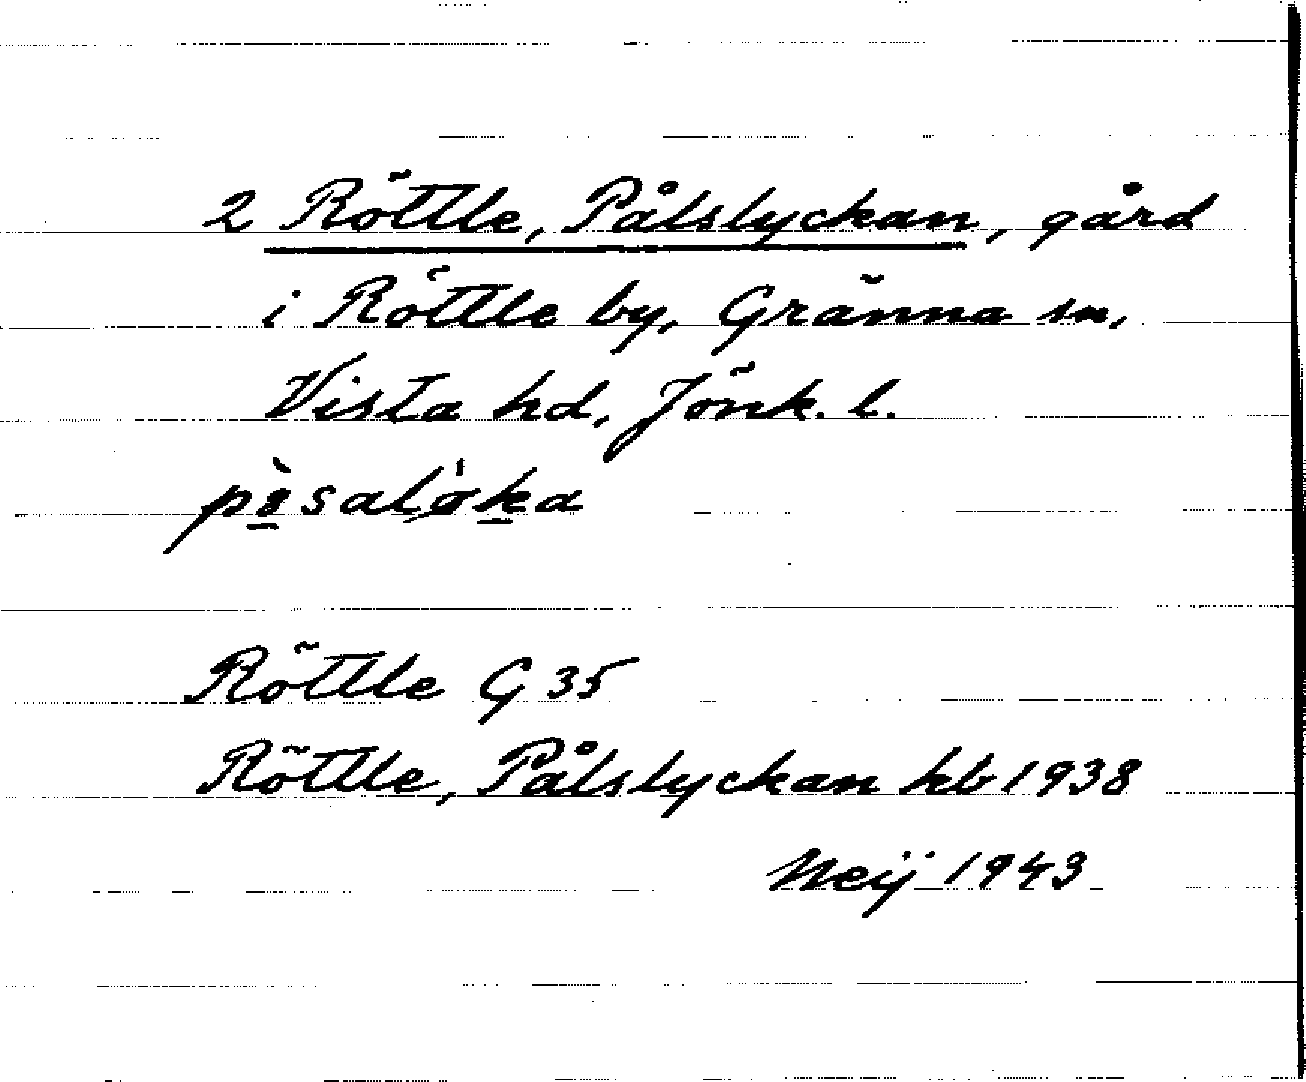 2 Röttle, Pålslyckan, gård
i Röttle by, Gränna sn,
Vista hd, Jönk. l.
Röttle G 35
Röttle, Pålslyckan kb 1938
Neij 1943